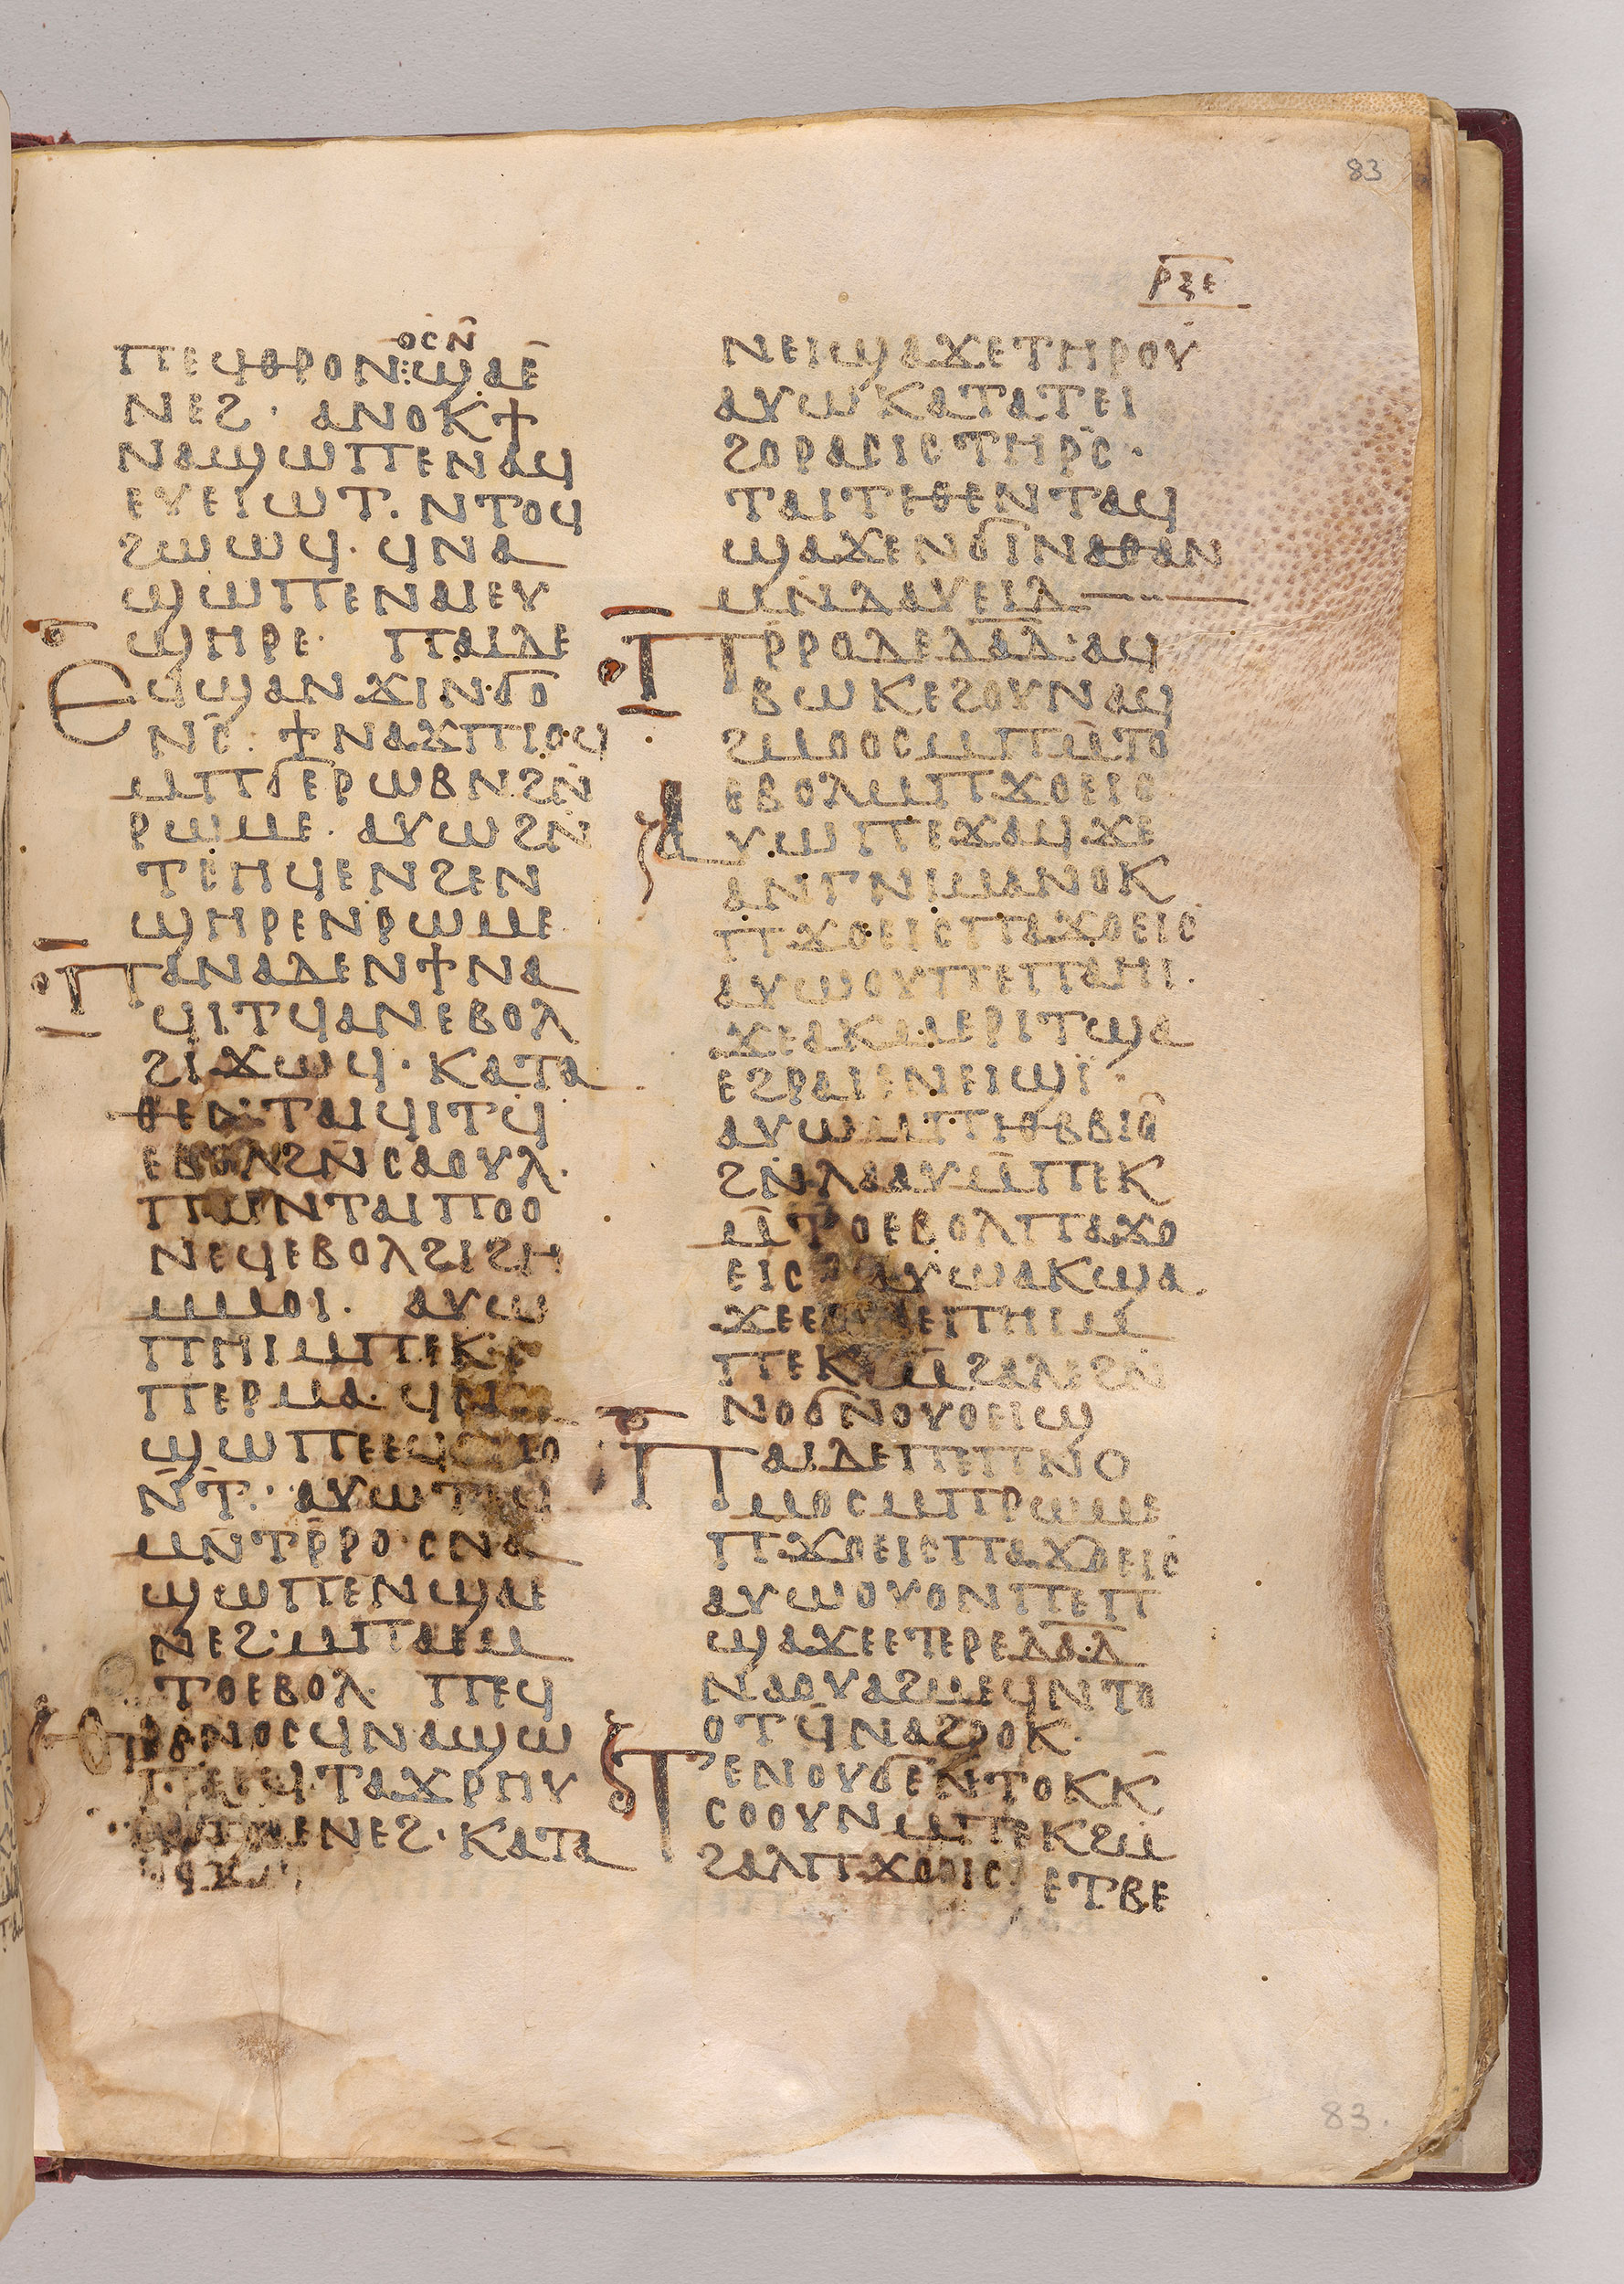 83
ⲣⲝⲉ
ⲟⲥⲛ̄
ⲡⲉϥⲑⲣⲟⲛ:ϣⲁⲉ̄
ⲛⲉϩ · ⲁⲛⲟⲕϯ
ⲛⲁϣⲱⲡⲉⲛⲁϥ
ⲉⲩⲉⲓⲱⲧ. ⲛⲧⲟϥ
ϩⲱⲱϥ · ϥⲛⲁ
ϣⲱⲡⲉⲛⲁⲓⲉⲩ
ϣⲏⲣⲉ· ⲡⲁⲓⲇⲉ
ⲉϥϣⲁⲛϫⲓⲛϭⲟ
ⲛⲥ̄ · ϯⲛⲁϫⲡⲓⲟϥ
ⲙⲡϭⲉⲣⲱⲃⲛϩⲛ̄
ⲣⲱⲙⲉ · ⲁⲩⲱϩⲛ̄
ⲧⲉⲏϥⲉⲛϩⲉⲛ
ϣⲏⲣⲉⲛⲣⲱⲙⲉ
ⲡⲁⲛⲁⲇⲉⲛϯⲛⲁ
ϥⲓⲧϥⲁⲛⲉⲃⲟⲗ
ϩⲓϫⲱϥ · ⲕⲁⲧⲁ
ⲑⲉⲛⲧⲁⲓϥⲓⲧϥ
ⲉⲃⲟⲗϩⲛ̄ⲥⲁⲟⲩⲗ ·
ⲡⲁⲓⲛⲧⲁⲓⲡⲟⲟ
ⲛⲉϥⲉⲃⲟⲗϩⲓϩⲏ
ⲙⲙⲟⲓ · ⲁⲩⲱ
ⲡⲏⲓⲙⲡⲉⲕⲥ
ⲡⲉⲣⲙⲁ · ϥⲛⲁ
ϣⲱⲡⲉⲉϥ
ⲛ̄ⲧ̄ · ⲁⲩⲱⲧⲉϥ
ⲙⲛ̄ⲧⲣ̄ⲣⲟ·ⲥⲛⲁ
ϣⲱⲡⲉⲛϣⲁⲉ
ⲛⲉϩ·ⲙⲡⲁⲉⲙ
ⲧⲟⲉⲃⲟⲗ· ⲡⲉϥ
ⲑⲣⲟⲛⲟⲥϥⲛⲁϣⲱ
ⲡⲉⲉϥⲧⲁϫⲣⲏⲩ
ⲉⲛⲉϩ · ⲕⲁⲧⲁ
ⲛⲉⲓϣⲁϫⲉⲧⲏⲣⲟⲩ
ⲁⲩⲱⲕⲁⲧⲁⲧⲉⲓ
ϩⲟⲣⲁⲥⲓⲥⲧⲏⲣⲥ̄ ·
ⲧⲁⲓⲧⲉⲑⲉⲛⲧⲁϥ
ϣⲁϫⲉⲛϭⲓⲛⲁⲑⲁⲛ
ⲙⲛ̄ⲇⲁⲩⲉⲓⲇ
ⲡⲣ̄ⲣⲟⲇⲉⲇⲁⲇ·ⲁϥ
ⲃⲱⲕⲉϩⲟⲩⲛⲁϥ
ϩⲙⲟⲟⲥⲙⲡⲙ̄ⲧⲟ
ⲉⲃⲟⲗⲙⲡϫⲟⲉⲓⲥ
ⲁⲩⲱⲡⲉϫⲁϥϫⲉ
ⲁⲛⲅⲛⲓⲙⲁⲛⲟⲕ
ⲡϫⲟⲉⲓⲥⲡⲁϫⲟⲉⲓⲥ
ⲁⲩⲱⲟⲩⲡⲉⲡⲁⲏⲓ ·
ϫⲉⲁⲕⲙⲉⲣⲓⲧϣⲁ
ⲉϩⲣⲁⲓⲉⲛⲉⲓϣⲓ̈ ·
ⲁⲩⲱⲙⲡⲓⲑⲃⲃⲓⲟ̄
ϩⲛ̄ⲗⲁⲁⲩⲙ̄ⲡⲉⲕ
ⲙ̄ⲧⲟⲉⲃⲟⲗⲡⲁϫⲟ
ⲉⲓⲥ ⲁⲩⲱⲁⲕϣⲁ
ϫⲉⲉ ⲉⲡⲏⲓⲙ
ⲡⲉⲕϩⲙ̄ϩⲁⲗⲉϩⲛ̄
ⲛⲟϭⲛⲟⲩⲟⲉⲓϣ
ⲡⲁⲓⲇⲉⲡⲉⲡⲛⲟ
ⲙⲟⲥⲙⲡⲣⲱⲙⲉ
ⲡϫⲟⲉⲓⲥⲡⲁϫⲟⲉⲓⲥ
ⲁⲩⲱⲟⲩⲟⲛⲡⲉⲡ
ϣⲁϫⲉⲉⲧⲉⲣⲉⲇⲁⲇ
ⲛⲁⲟⲩⲁϩⲙⲉϥⲛⲧⲟ
ⲟⲧϥ̄ⲛⲁϩⲣⲟⲕ.
ⲧⲉⲛⲟⲩϭⲉⲛⲧⲟⲕⲕ̄
ⲥⲟⲟⲩⲛⲙⲡⲉⲕϩⲙ̄
ϩⲁⲗⲡϫⲟⲉⲓⲥ ⲉⲧⲃⲉ
83.